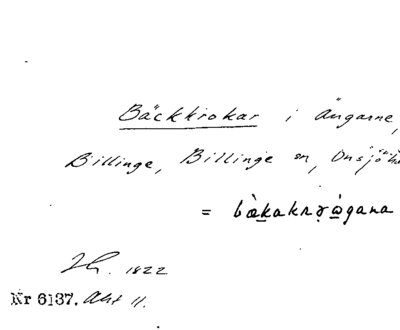 Bäckkrokar i Ängarne,
Billinge, Billinge sn, Onsjö
= bàkakrɣ̣ägana
1822
Nr 6137. Akt 11.